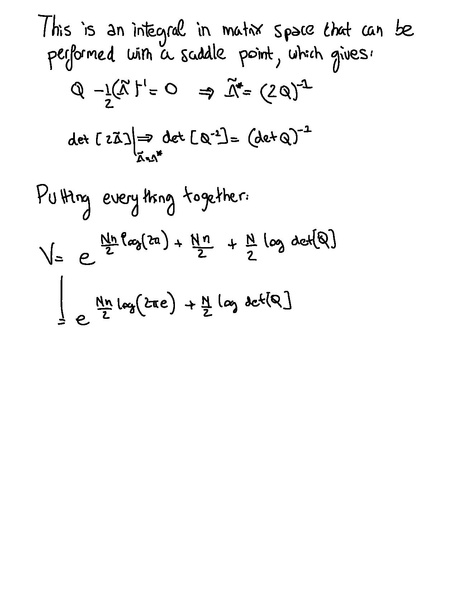 This is an integral in matrix space that can be
performed with a saddle point, which gives:
Q - 1/2 (Λ̃)⁻¹ = 0 ⇒ Λ̃* = (2Q)⁻¹
det [2Λ̃]|_{Λ̃=Λ*} ⇒ det [Q⁻¹] = (det Q)⁻¹
Putting everything together:
V = e^{Nn/2 log(2π) + Nn/2 + N/2 log det[Q]}
= e^{Nn/2 log(2πe) + N/2 log det[Q]}